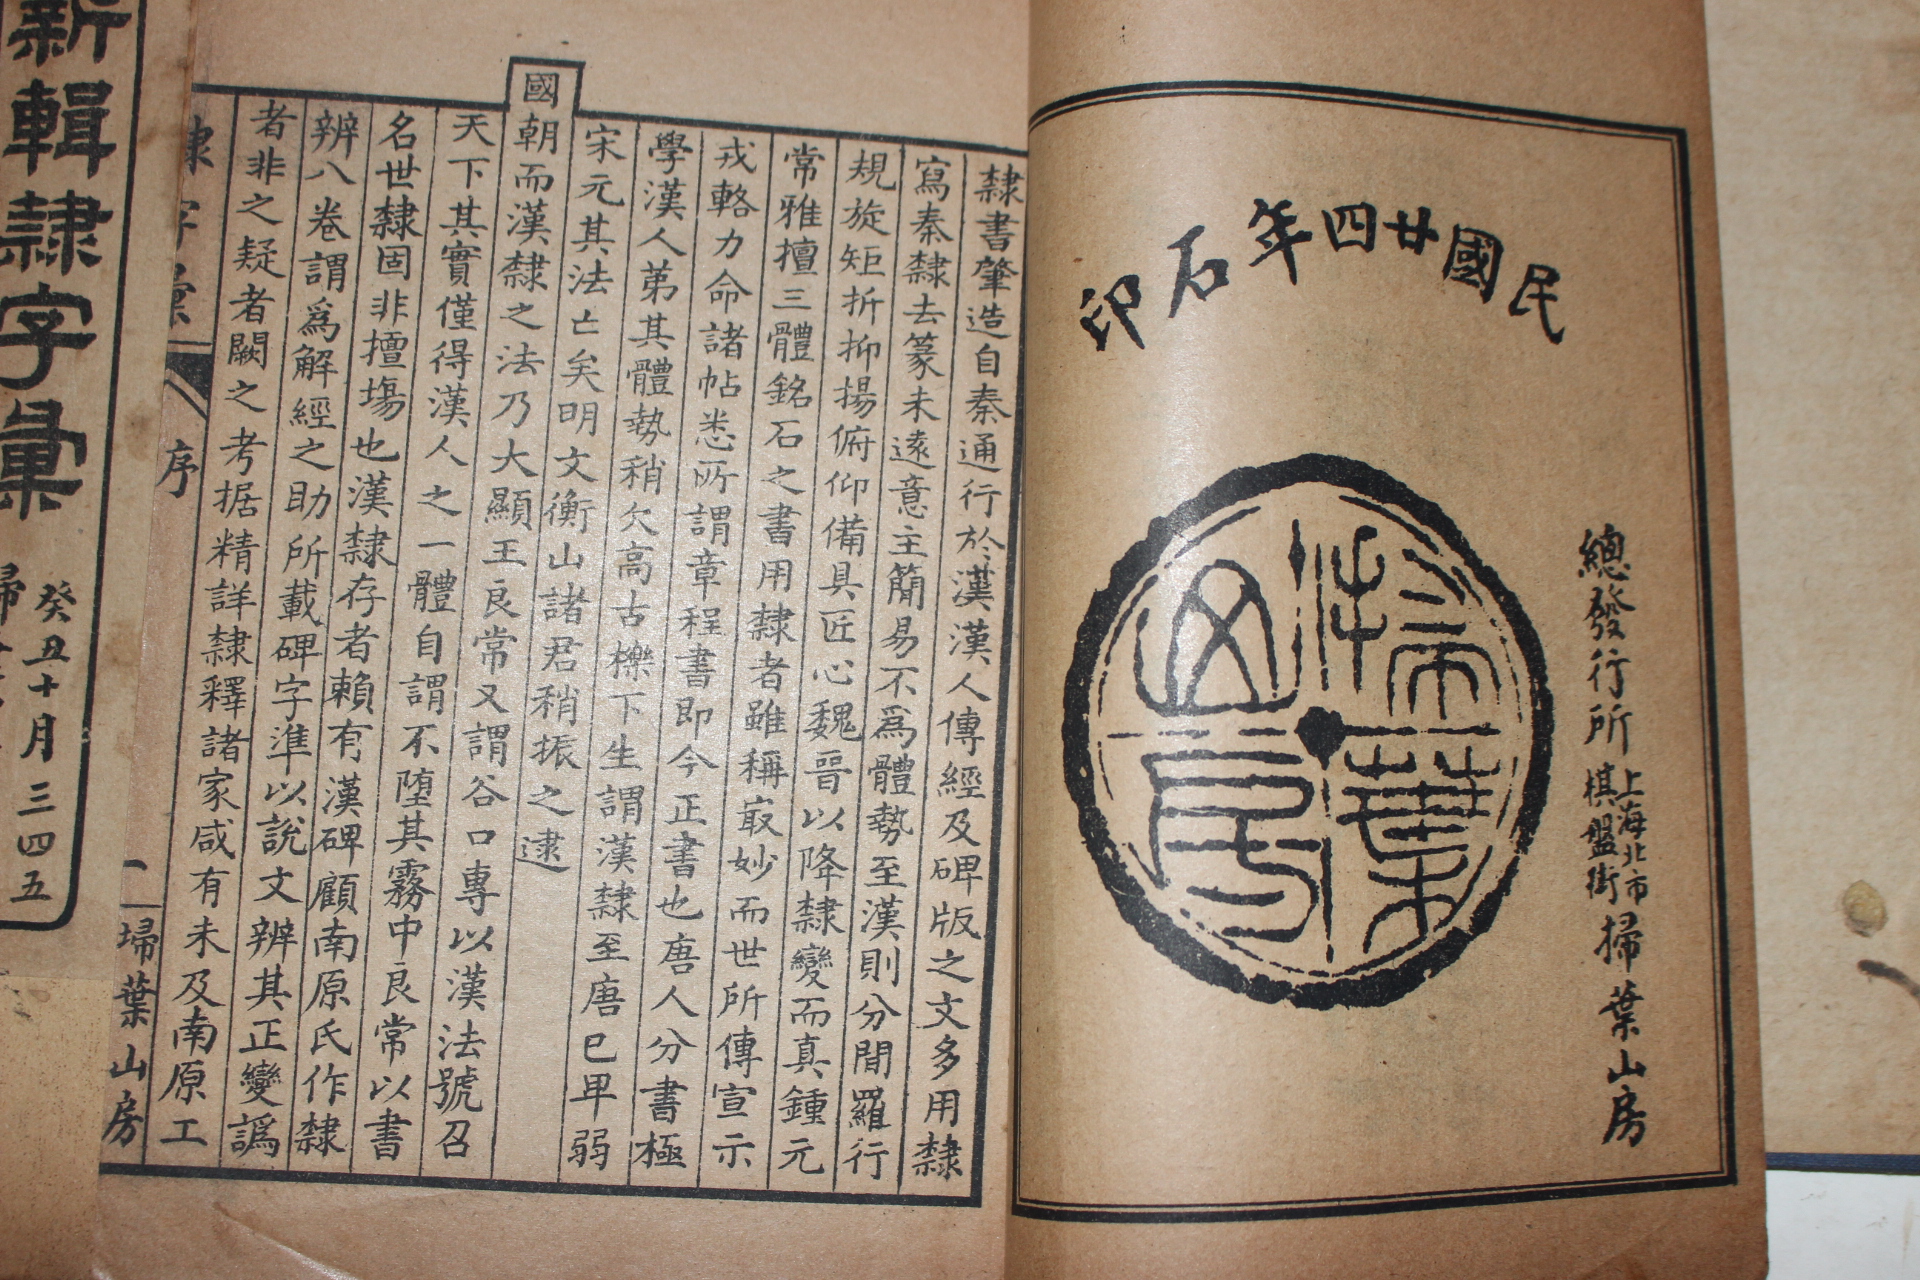 民國廿四年石印
掃葉山房
總發行所
上海北市
棋盤街
掃葉山房
隸書肇造自秦通行於漢漢人傳經及碑版之文多用隸
寫秦隸去篆未遠意主簡易不爲體勢至漢則分間羅行
規旋矩折抑揚俯仰備具匠心魏晉以降隸變而真鍾元
常雅擅三體銘石之書用隸者雖稱㝡妙而世所傳宣示
戎輅力命諸帖悉所謂章程書即今正書也唐人分書極
學漢人苐其體勢稍欠高古櫟下生謂漢隸至唐巳卑弱
宋元其法亡矣明文衡山諸君稍振之逮
國朝而漢隸之法乃大顯王良常又謂谷口專以漢法號召
天下其實僅得漢人之一體自謂不墮其霧中良常以書
名世隸固非擅塲也漢隸存者賴有漢碑顧南原氏作隸
辨八卷謂爲解經之助所載碑字準以說文辨其正變譌
者非之疑者闕之考据精詳隸釋諸家咸有未及南原工
隸字彙
序
一
埽葉山房
新輯隸字彙
癸丑十月三四五